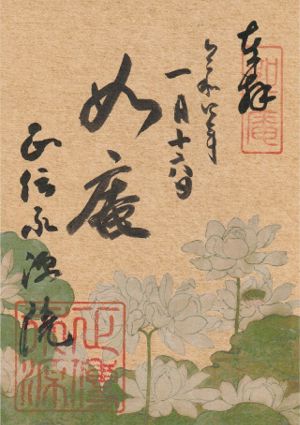 奉拝
如庵
令和年
一月十六日
如庵
正伝永源院
正傳永源